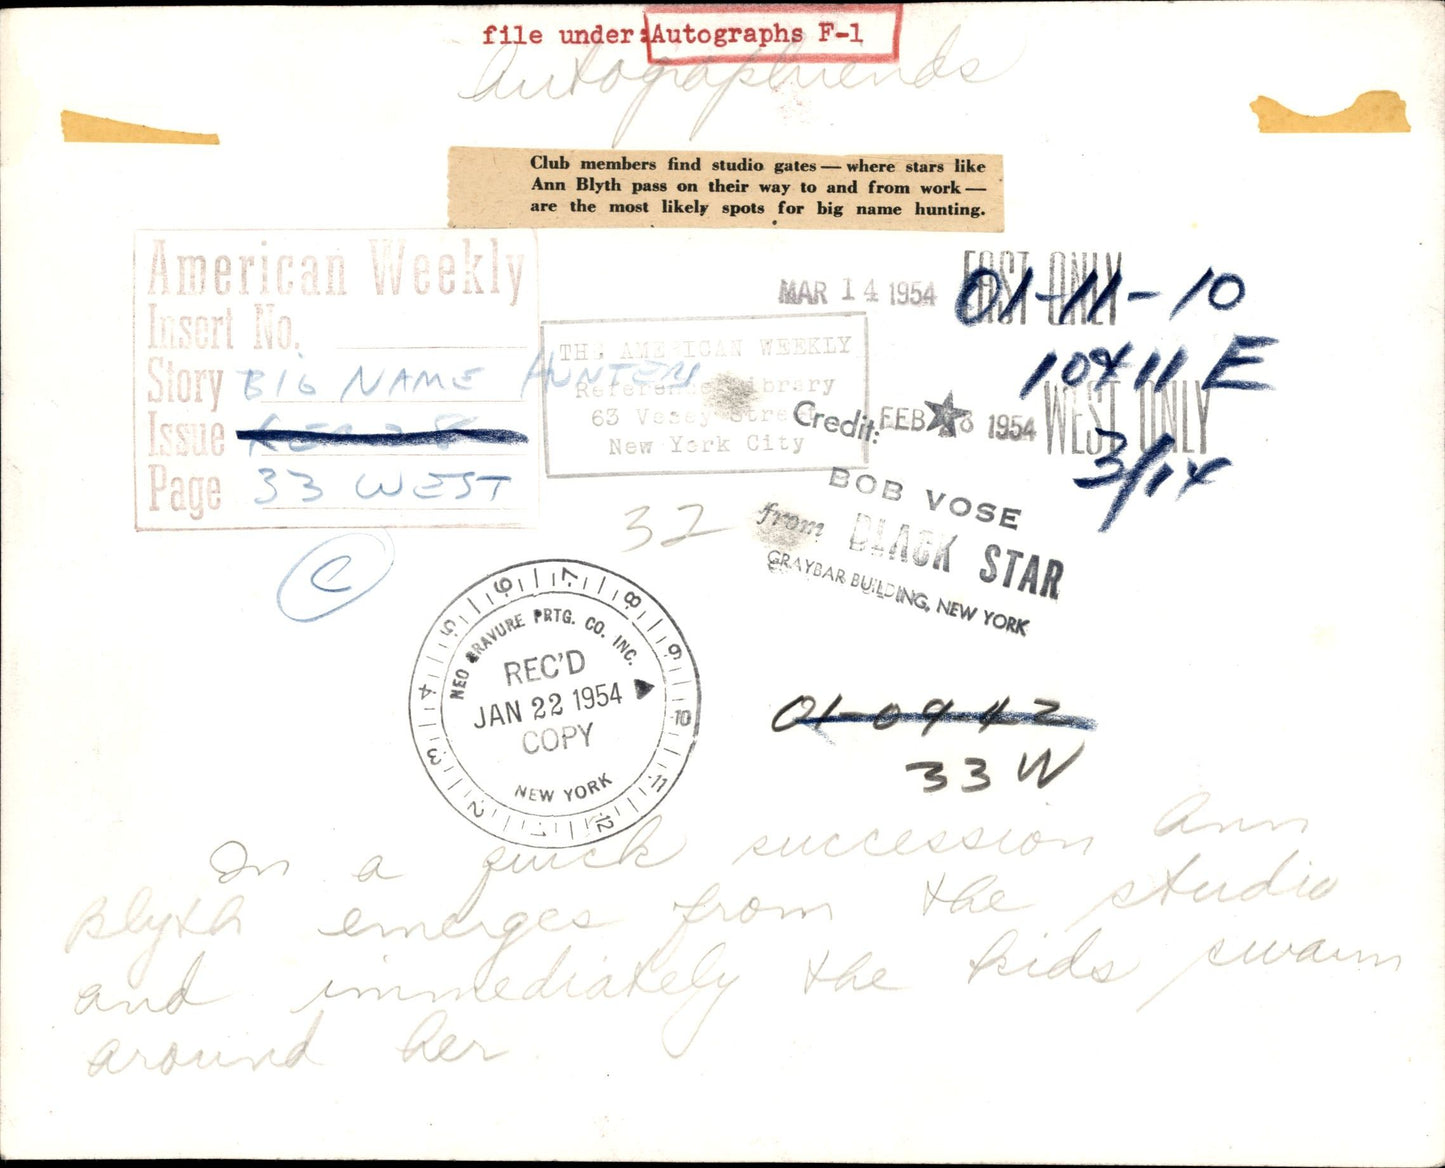 file under: Autographs F-1
Autographriends
Club members find studio gates — where stars like
Ann Blyth pass on their way to and from work —
are the most likely spots for big name hunting.
American Weekly
Insert No.
Story BIG NAME HUNTERS
Issue
Page 33 WEST
MAR 14 1954
EAST ONLY
01-11-10
10 11 E
THE AMERICAN WEEKLY
Reference Library
63 Vesey Street
New York City
Credit:
FEB 1954
WEST ONLY
3/14
BOB VOSE
from BLACK STAR
GRAYBAR BUILDING, NEW YORK
32
C
NEO GRAVURE PRTG. CO. INC.
REC'D
JAN 22 1954
COPY
NEW YORK
1 2 3 4 5 6 7 8 9 10 11 12
01-09-42
33 W
In a quick succession Ann
Blyth emerges from the studio
and immediately the kids swarm
around her